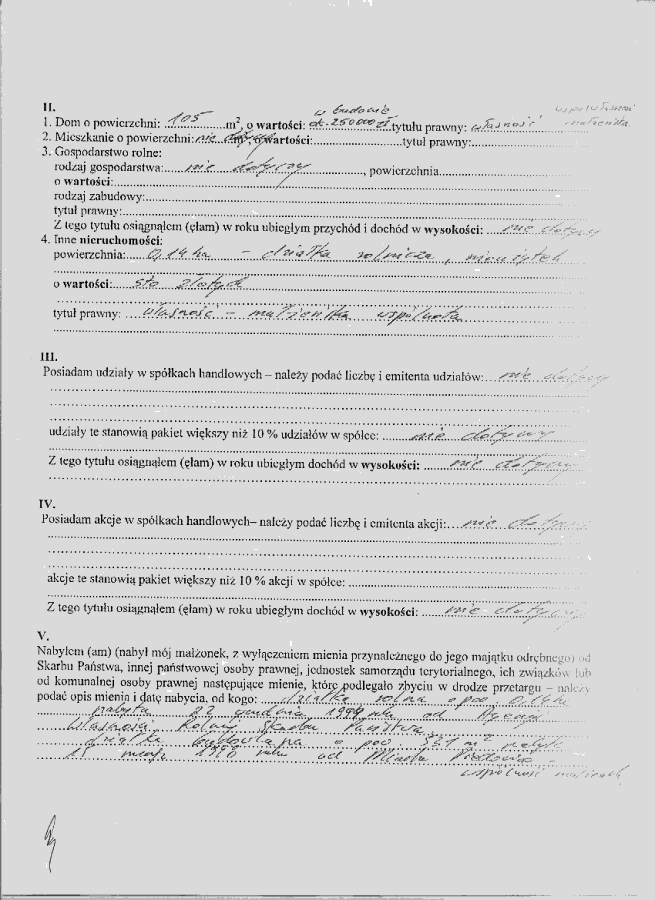 II.
w budowie współwłasność
1. Dom o powierzchni: 105 m², o wartości: ok. 250000 zł tytułu prawny: własność małżeńska
2. Mieszkanie o powierzchni: nie dotyczy m², o wartości: tytuł prawny:
3. Gospodarstwo rolne:
rodzaj gospodarstwa: nie dotyczy, powierzchnia
o wartości:
rodzaj zabudowy:
tytuł prawny:
Z tego tytułu osiągnąłem (ęłam) w roku ubiegłym przychód i dochód w wysokości: nie dotyczy
4. Inne nieruchomości:
powierzchnia: 0,14 ha – działka rolnicza, nieużytek
o wartości: sto złotych
tytuł prawny: własność – małżeńska wspólnota
III.
Posiadam udziały w spółkach handlowych – należy podać liczbę i emitenta udziałów: nie dotyczy
udziały te stanowią pakiet większy niż 10 % udziałów w spółce: nie dotyczy
Z tego tytułu osiągnąłem (ęłam) w roku ubiegłym dochód w wysokości: nie dotyczy
IV.
Posiadam akcje w spółkach handlowych– należy podać liczbę i emitenta akcji: nie dotyczy
akcje te stanowią pakiet większy niż 10 % akcji w spółce:
Z tego tytułu osiągnąłem (ęłam) w roku ubiegłym dochód w wysokości: nie dotyczy
V.
Nabyłem (am) (nabył mój małżonek, z wyłączeniem mienia przynależnego do jego majątku odrębnego) od
Skarbu Państwa, innej państwowej osoby prawnej, jednostek samorządu terytorialnego, ich związków lub
od komunalnej osoby prawnej następujące mienie, które podlegało zbyciu w drodze przetargu – należy
podać opis mienia i datę nabycia, od kogo: działka rolna o pow. 0,14 ha
nabyta 22 grudnia 1999 roku od Agencji
Własności Rolnej Skarbu Państwa,
działka budowlana o pow. 361 m²
11 1990 roku od Miasta
wspólność